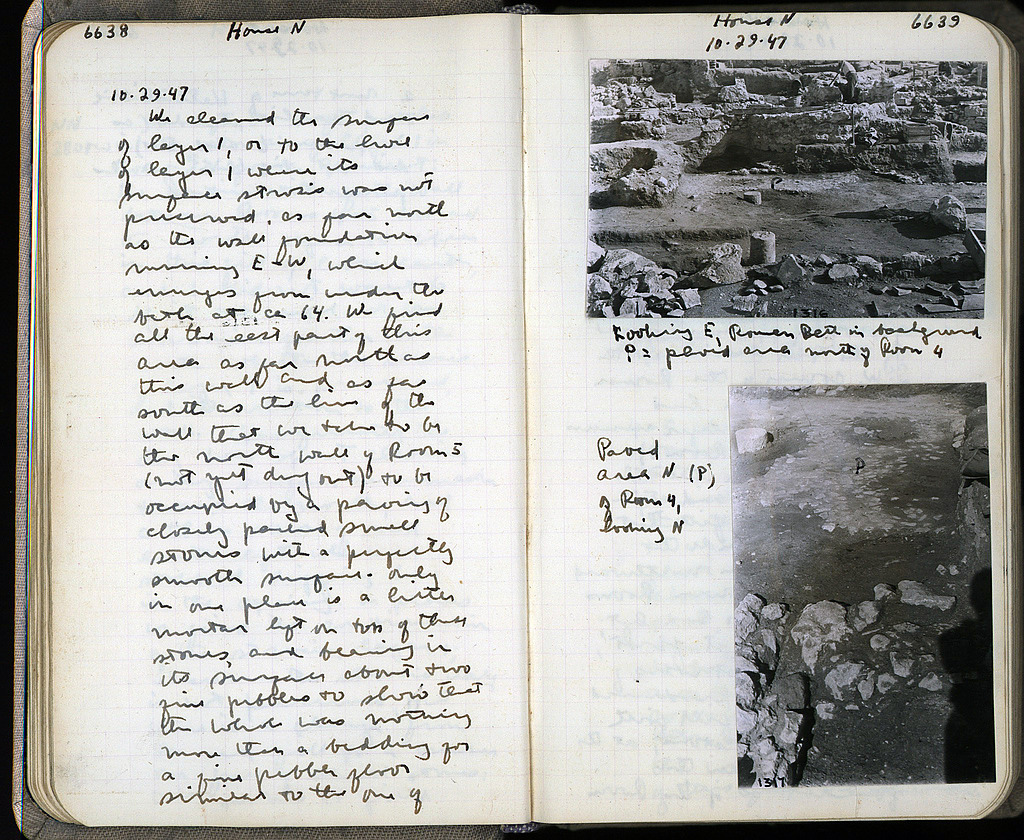 6638
House N
10·29·47
We cleaned the surface
of layer 1, or to the level
of layer 1 where its
surface strosis was not
preserved, as far north
as the wall foundation
running E-W, which
emerges from under the
bath at ca 64. We find
all the east part of this
area as far north as
this wall and as far
south as the line of the
wall that we take to be
the north wall of Room 5
(not yet dug out) to be
occupied by a paving of
closely packed small
stones with a perfectly
smooth surface. Only
in one place is a little
mortar left on top of these
stones, and bearing in
its surface about two
fine pebbles to show that
the whole was nothing
more than a bedding for
a fine pebble floor
similar to the one of
House N
6639
10·29·47
P
1316
Looking E, Roman Bath in background
P = paved area north of Room 4
Paved
area N (P)
of Room 4,
looking N
P
1317